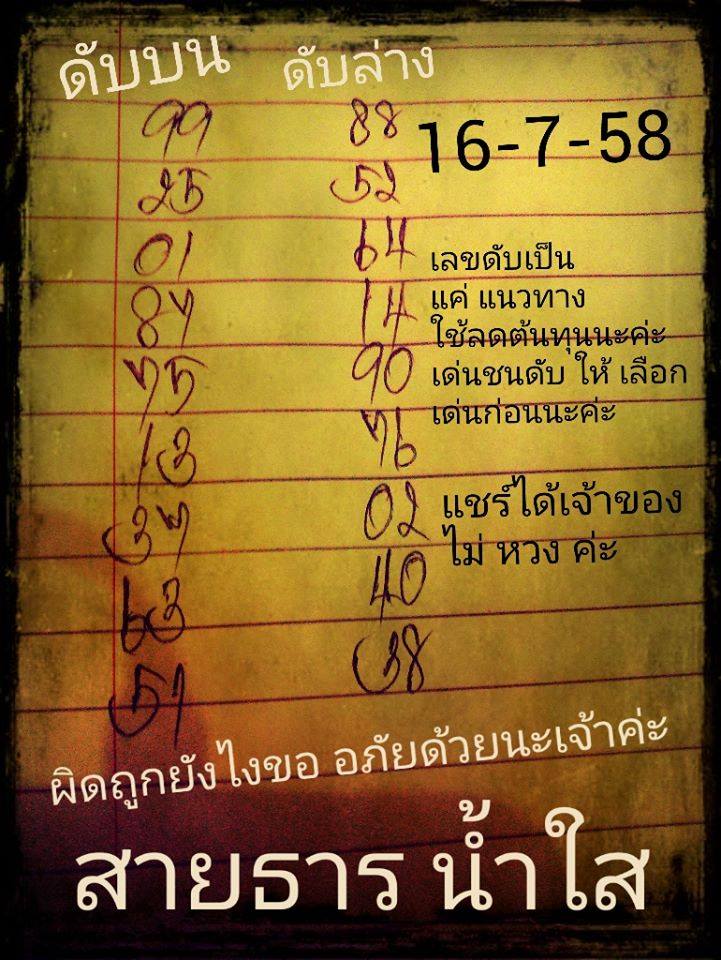 ดับบน ดับล่าง
99 88
16-7-58
25 52
01 64
87 14
75 90
13 76
37 02
63 40
51 38
เลขดับเป็น
แค่ แนวทาง
ใช้ลดต้นทุนนะค่ะ
เด่นชนดับ ให้ เลือก
เด่นก่อนนะค่ะ
แชร์ได้เจ้าของ
ไม่ หวง ค่ะ
ผิดถูกยังไงขอ อภัยด้วยนะเจ้าค่ะ
สายธาร น้ำใส